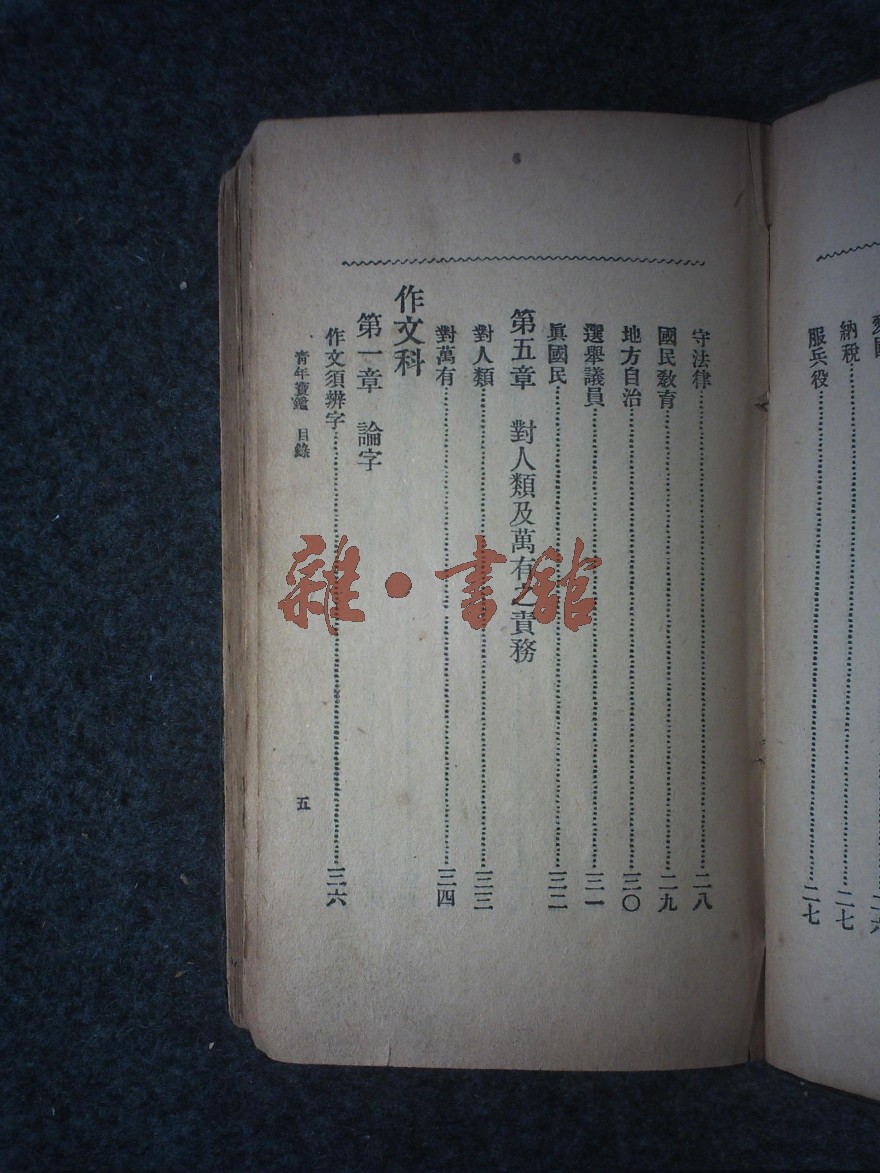 納稅……二七
服兵役……二七
守法律……二八
國民教育……二九
地方自治……三〇
選舉議員……三一
眞國民……三二
第五章　對人類及萬有之責務
對人類……三三
對萬有……三四
作文科
第一章　論字
作文須辨字……三六
青年寶鑑　目錄
五
雜·書館